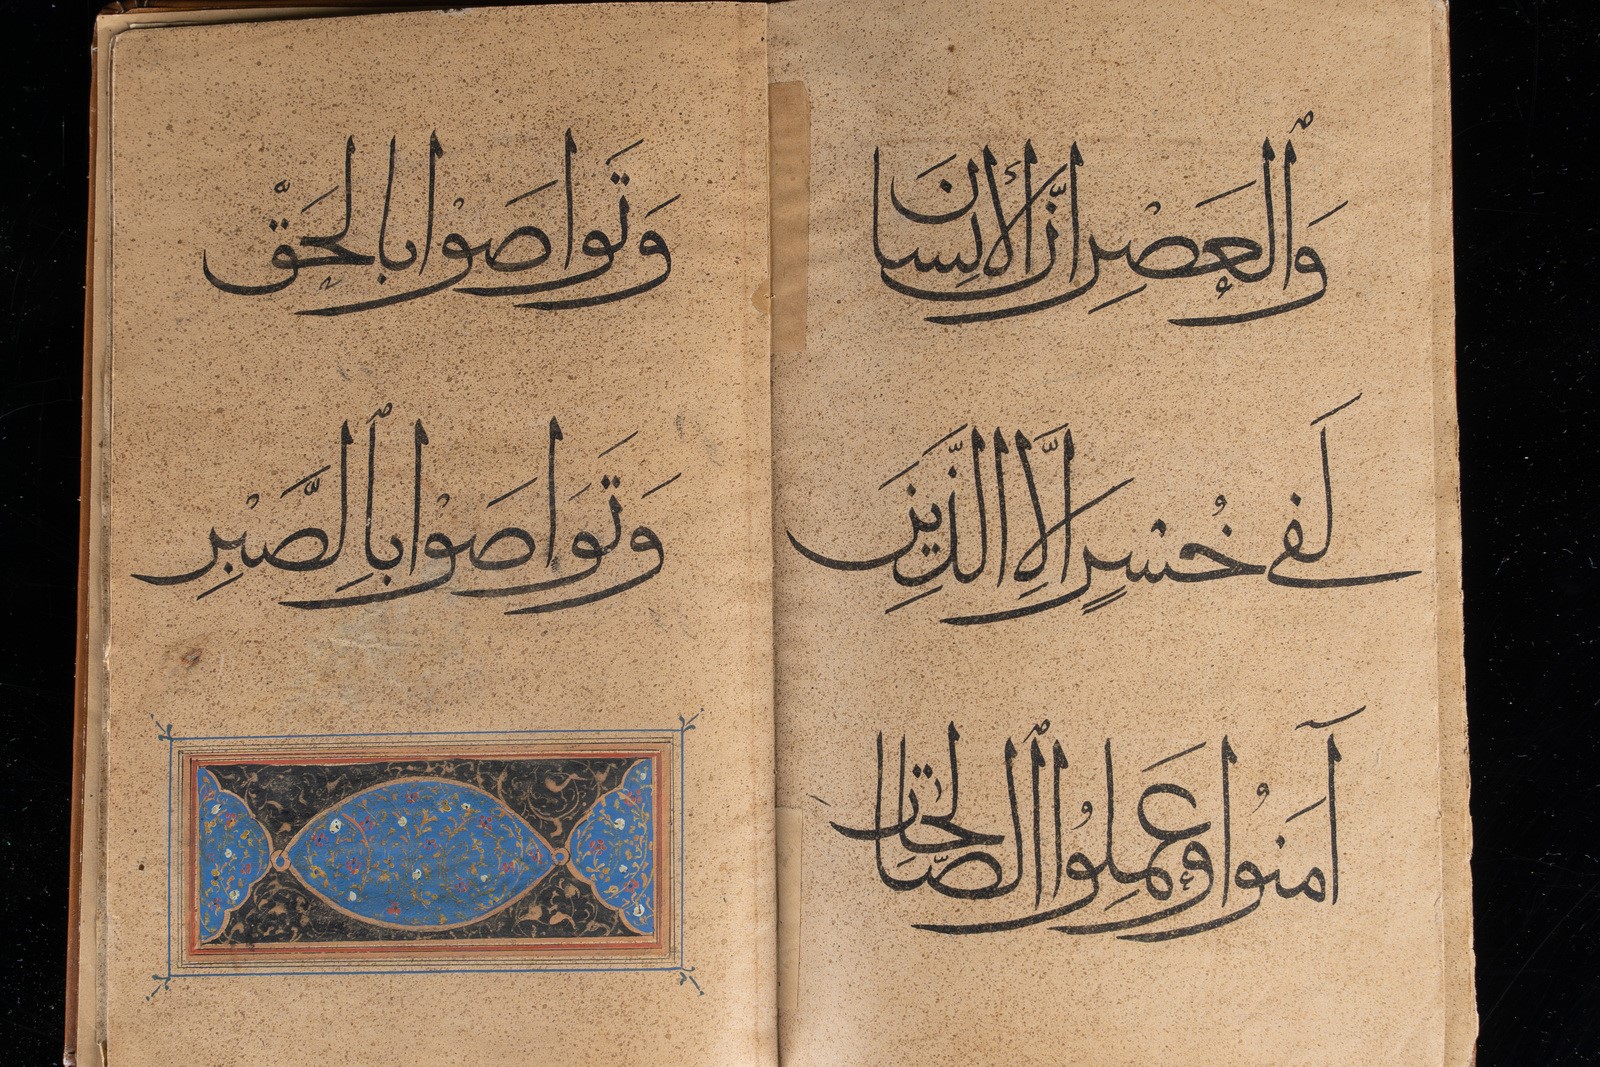 وَٱلْعَصْرِ اِنَّ الْأِنسَانَ
لَفِي خُسْرٍ اِلَّا الَّذِينَ
آمَنُوا وَعَمِلُوا ٱلصَّالِحَاتِ
وَتَوَاصَوْا بِالْحَقِّ
وَتَوَاصَوْا بِٱلصَّبْرِ